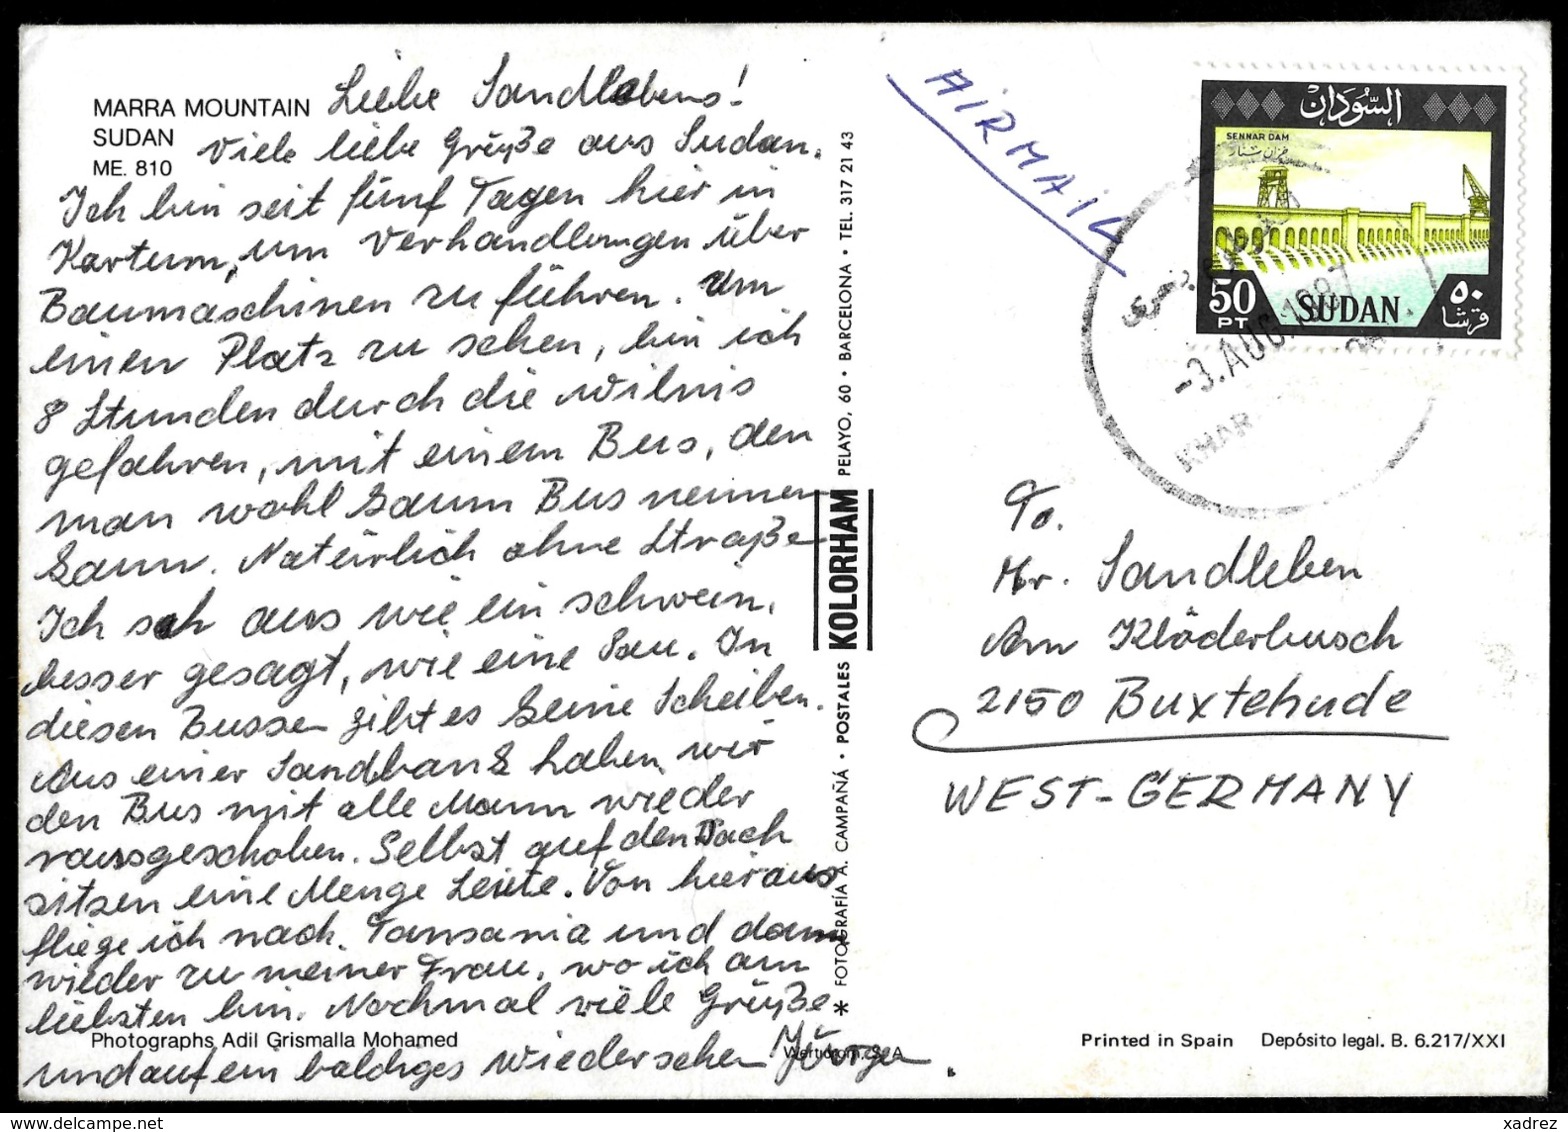 MARRA MOUNTAIN
SUDAN
ME. 810
Liebe Sandlebens!
Viele liebe Grüße aus Sudan.
Ich bin seit fünf Tagen hier in
Kartum, um Verhandlungen über
Baumaschinen zu führen. Um
einen Platz zu sehen, bin ich
8 Stunden durch die Wilnis
gefahren, mit einem Bus, den
man wohl kaum Bus nennen
kann. Natürlich ohne Straße
Ich sah aus wie ein schwein,
besser gesagt, wie eine Sau. In
diesen Bussen gibt es keine Scheiben.
Aus einer Sandbank haben wir
den Bus mit alle Mann wieder
rausgeschoben. Selbst auf den Dach
sitzen eine Menge Leute. Von hieraus
fliege ich nach Tansania und dann
wieder zu meiner Frau, wo ich am
liebsten bin. Nochmal viele Grüße
und auf ein baldiges wiedersehen Jürgen.
Photographs Adil Grismalla Mohamed
* FOTOGRAFÍA A. CAMPAÑÁ · POSTALES KOLORHAM PELAYO, 60 · BARCELONA · TEL. 317 21 43
AIRMAIL
السودان
SENNAR DAM
خزان سنار
50 PT
SUDAN
٥٠ قرشا
-3.AUG.1987
KHAR
To.
Mr. Sandleben
Am Klöderbusch
2150 Buxtehude
WEST-GERMANY
Printed in Spain
Depósito legal. B. 6.217/XXI
xadrez